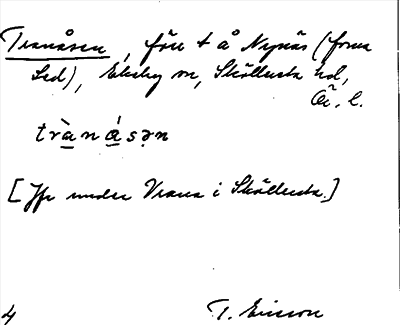 Tranåsen, före t å Nynäs (forna
Led), Ekeby sn, Sköllersta hd,
Ör. l.
trànásən
[Jfr under Vrana i Sköllersta.]
4 T. Ericsson